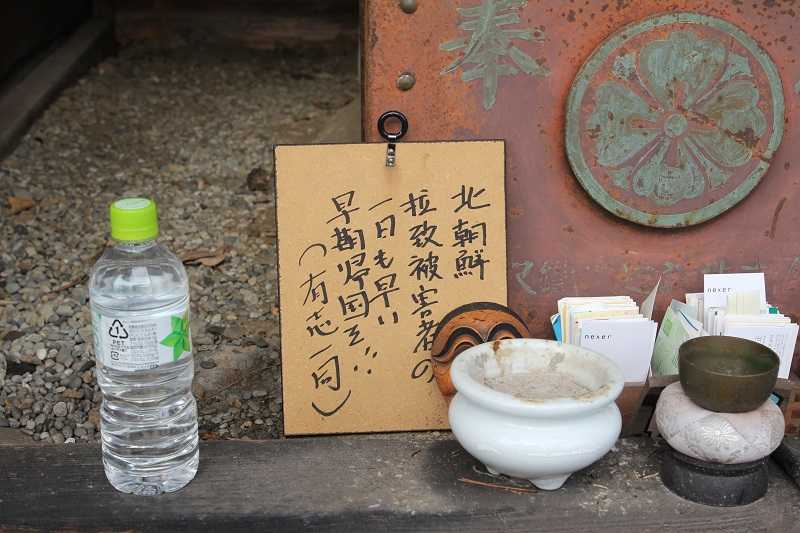 奉
北朝鮮
拉致被害者の
一日も早い
早期帰国を!!
(有志一同)
PET
nexer
nexer
nexer